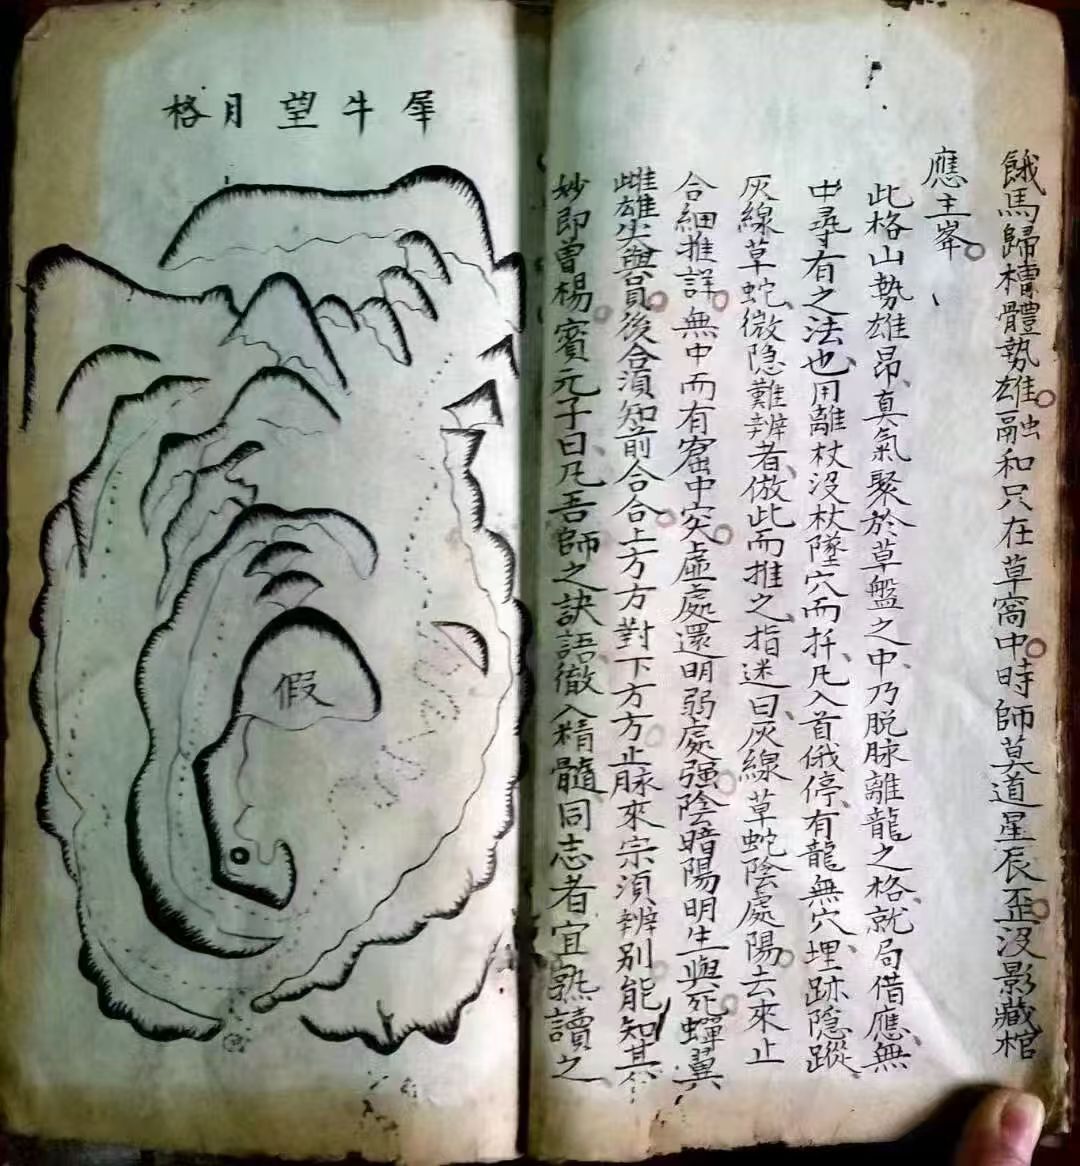 餓馬歸槽體勢雄融和只在草窩中時師莫道星辰歪沒影藏棺
應主峯
此格山勢雄昂真氣聚於草盤之中乃脱脉離龍之格就局借應無
中尋有之法也用離杖沒杖墜穴而扦凡入首俄停有龍無穴埋跡隱蹤
灰線草蛇微隐難辨者倣此而推之指迷曰灰線草蛇陰處陽去來止
合細推詳無中而有窟中突虛處還明弱處强陰暗陽明生與死蟬翼
雌雄尖與員後合須知前合合上方方對下方方止脉來宗須辨別能知其
妙即曾楊賓元子曰凡吾師之訣語徹入精髓同志者宜熟讀之
犀牛望月格
假